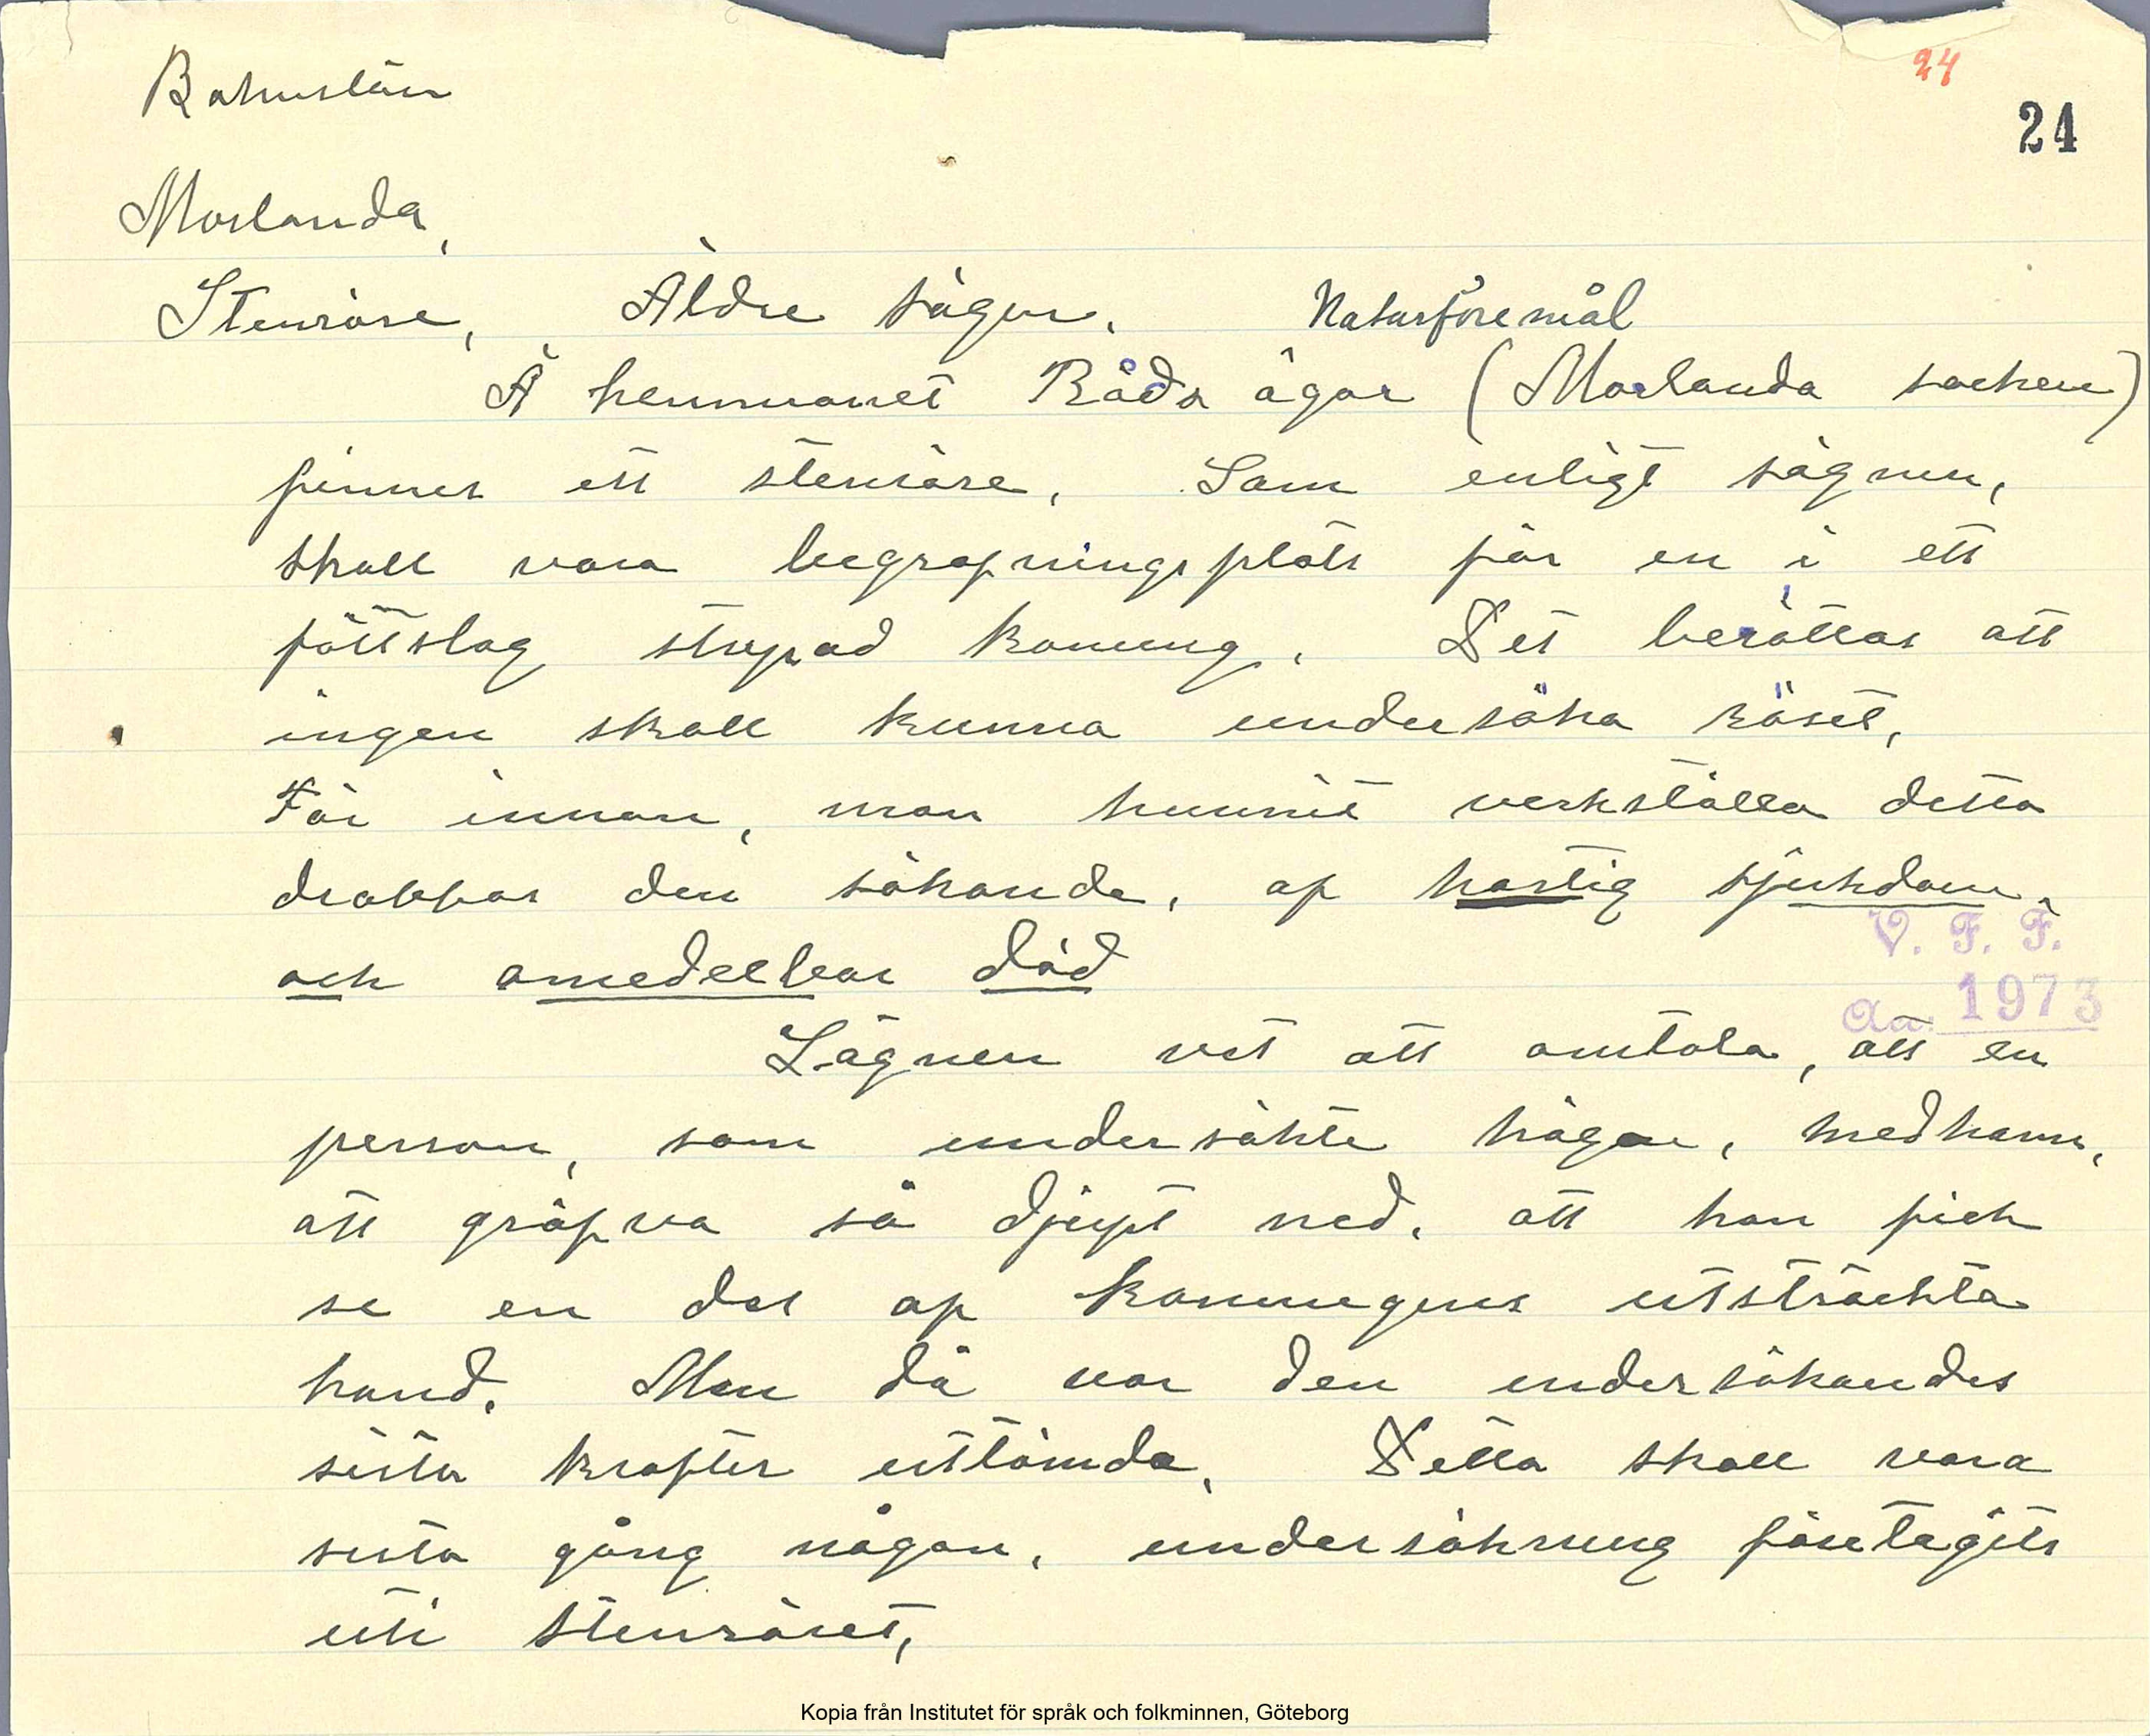 24
Bohuslän
24
Morlanda,
Stenröse, Äldre sägen. Naturföremål
Å hemmanet Råds ägor (Morlanda socken)
finnes ett stenröse, Som enligt sägnen,
skall vara begrafningsplats för en i ett
fältslag stupad konung. Det berättas att
ingen skall kunna undersöka röset,
För innan, man hunnit verkställa detta
drabbas den sökande, af hastig sjukdom,
och omedelbar död
V. F. F.
Aa: 1973
Sägnen vet att omtala, att en
person, som undersökte högen, medhann,
att gräfva så djupt ned, att han fick
se en del af konungens utsträckta
hand. Men då var den undersökandes
sista krafter uttömda. Detta skall vara
sista gång någon, undersökning företagits
uti stenröset,
Kopia från Institutet för språk och folkminnen, Göteborg